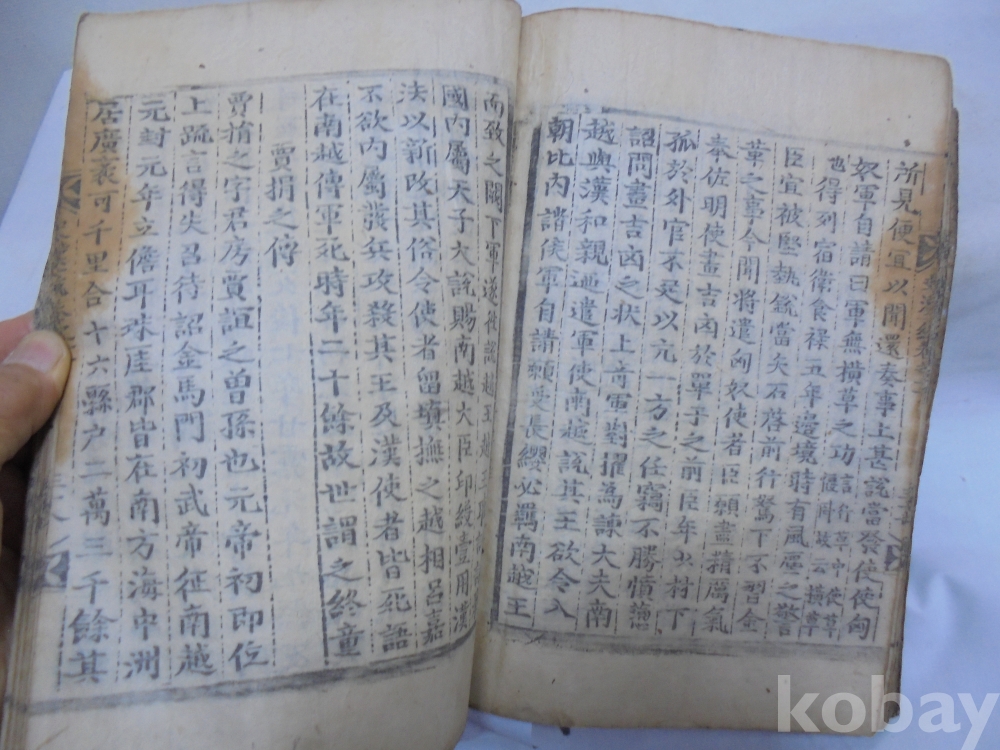 所見便宜以聞還奏事上甚說當發使使匈
奴軍自請曰軍無橫草之功言行草中使草偃臥故云橫草
也得列宿衛食祿五年邊境時有風塵之警
臣宜被堅執銳當矢石啓前行駑下不習金
革之事今聞將遣匈奴使者臣願盡精厲氣
奉佐明使畫吉凶於單于之前臣年少材下
孤於外官不足以亢一方之任竊不勝憤懣
詔問畫吉凶之狀上奇軍對擢為諫大夫南
越與漢和親迺遣軍使南越說其王欲令入
朝比內諸侯軍自請願受長纓必羈南越王
而致之闕下軍遂往說越王越王
國內屬天子大說賜南越大臣印綬壹用漢
法以新改其俗令使者留塡撫之越相呂嘉
不欲內屬發兵攻殺其王及漢使者皆死語
在南越傳軍死時年二十餘故世謂之終童
賈捐之傳
賈捐之字君房賈誼之曾孫也元帝初即位
上疏言得失召待詔金馬門初武帝征南越
元封元年立儋耳珠厓郡皆在南方海中洲
居廣袤可千里合十六縣戶二萬三千餘其
kobay